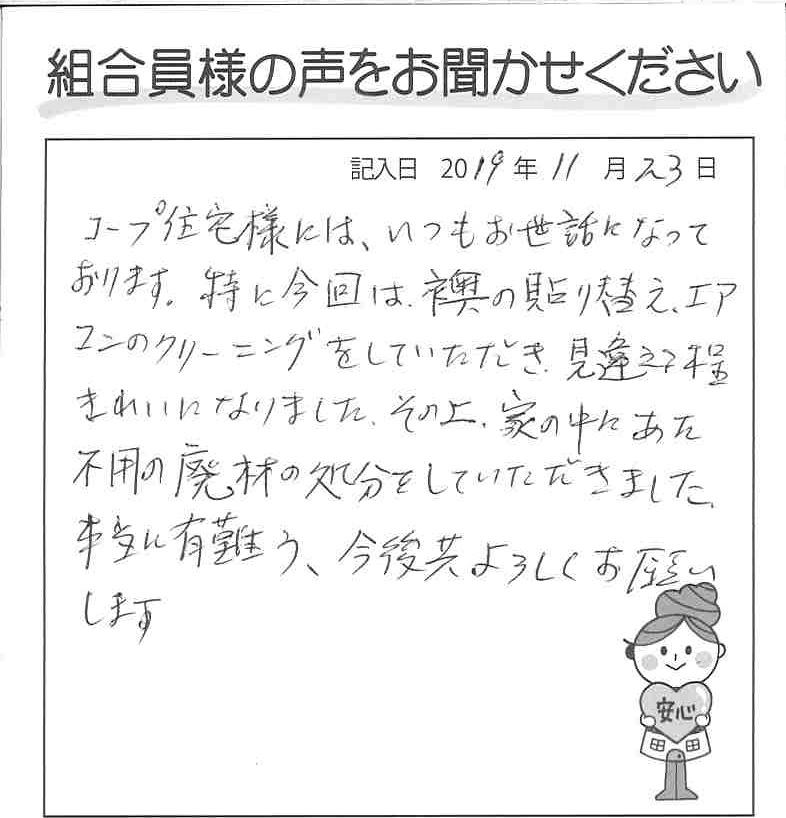 組合員様の声をお聞かせください
記入日 2019年11月23日
コープ住宅様には、いつもお世話になって
おります。特に今回は、襖の貼り替え、エア
コンのクリーニングをしていただき、見違える程
きれいになりました。その上、家の中にあった
不用の廃材の処分をしていただきました。
本当に有難う、今後共よろしくお願い
します
安心